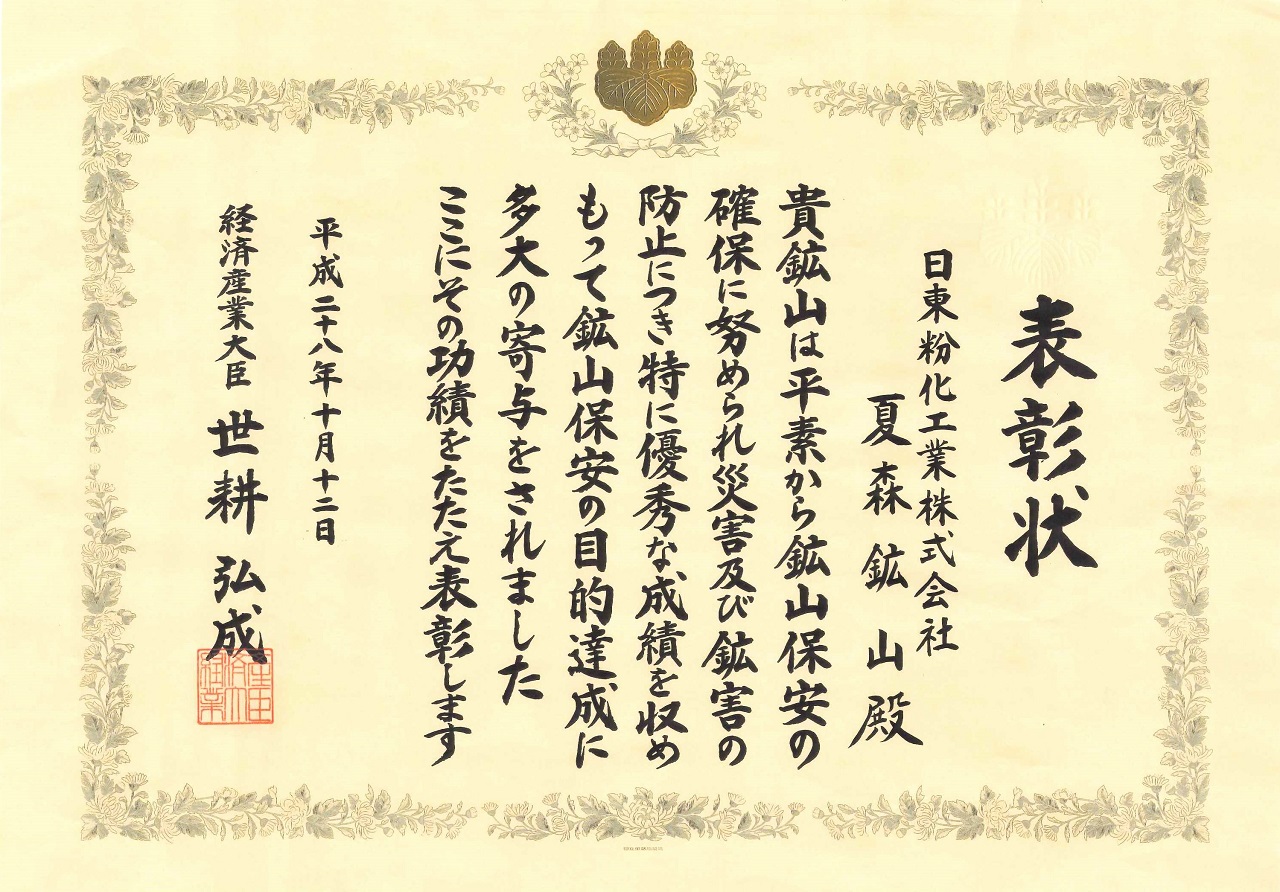 表彰状
日東粉化工業株式会社
夏森鉱山殿
貴鉱山は平素から鉱山保安の
確保に努められ災害及び鉱害の
防止につき特に優秀な成績を収め
もって鉱山保安の目的達成に
多大の寄与をされました
ここにその功績をたたえ表彰します
平成二十八年十月十二日
経済産業大臣 世耕弘成